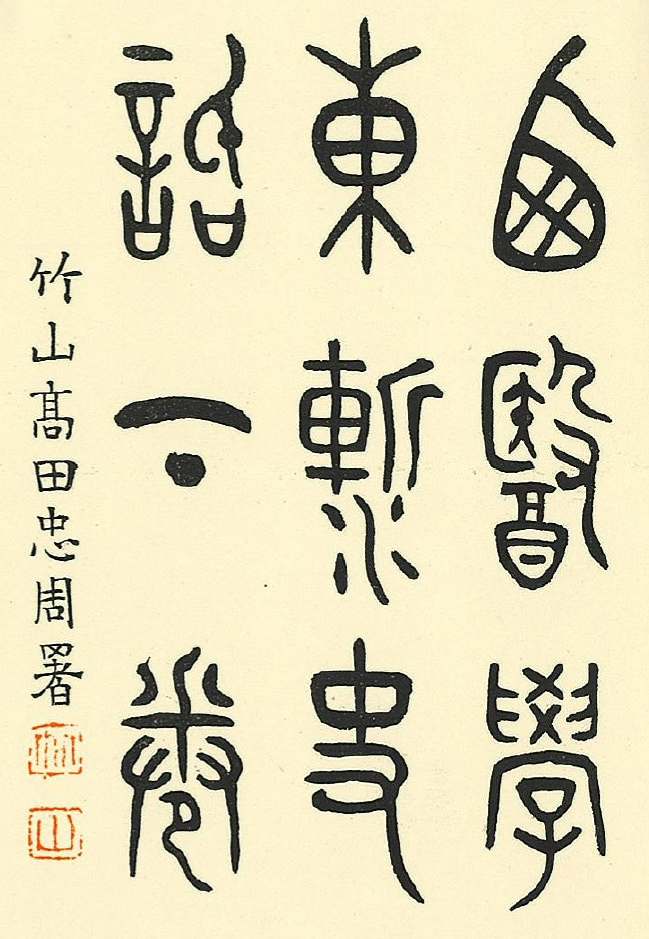 西醫學
東漸史
話下卷
竹山髙田忠周署
竹
山